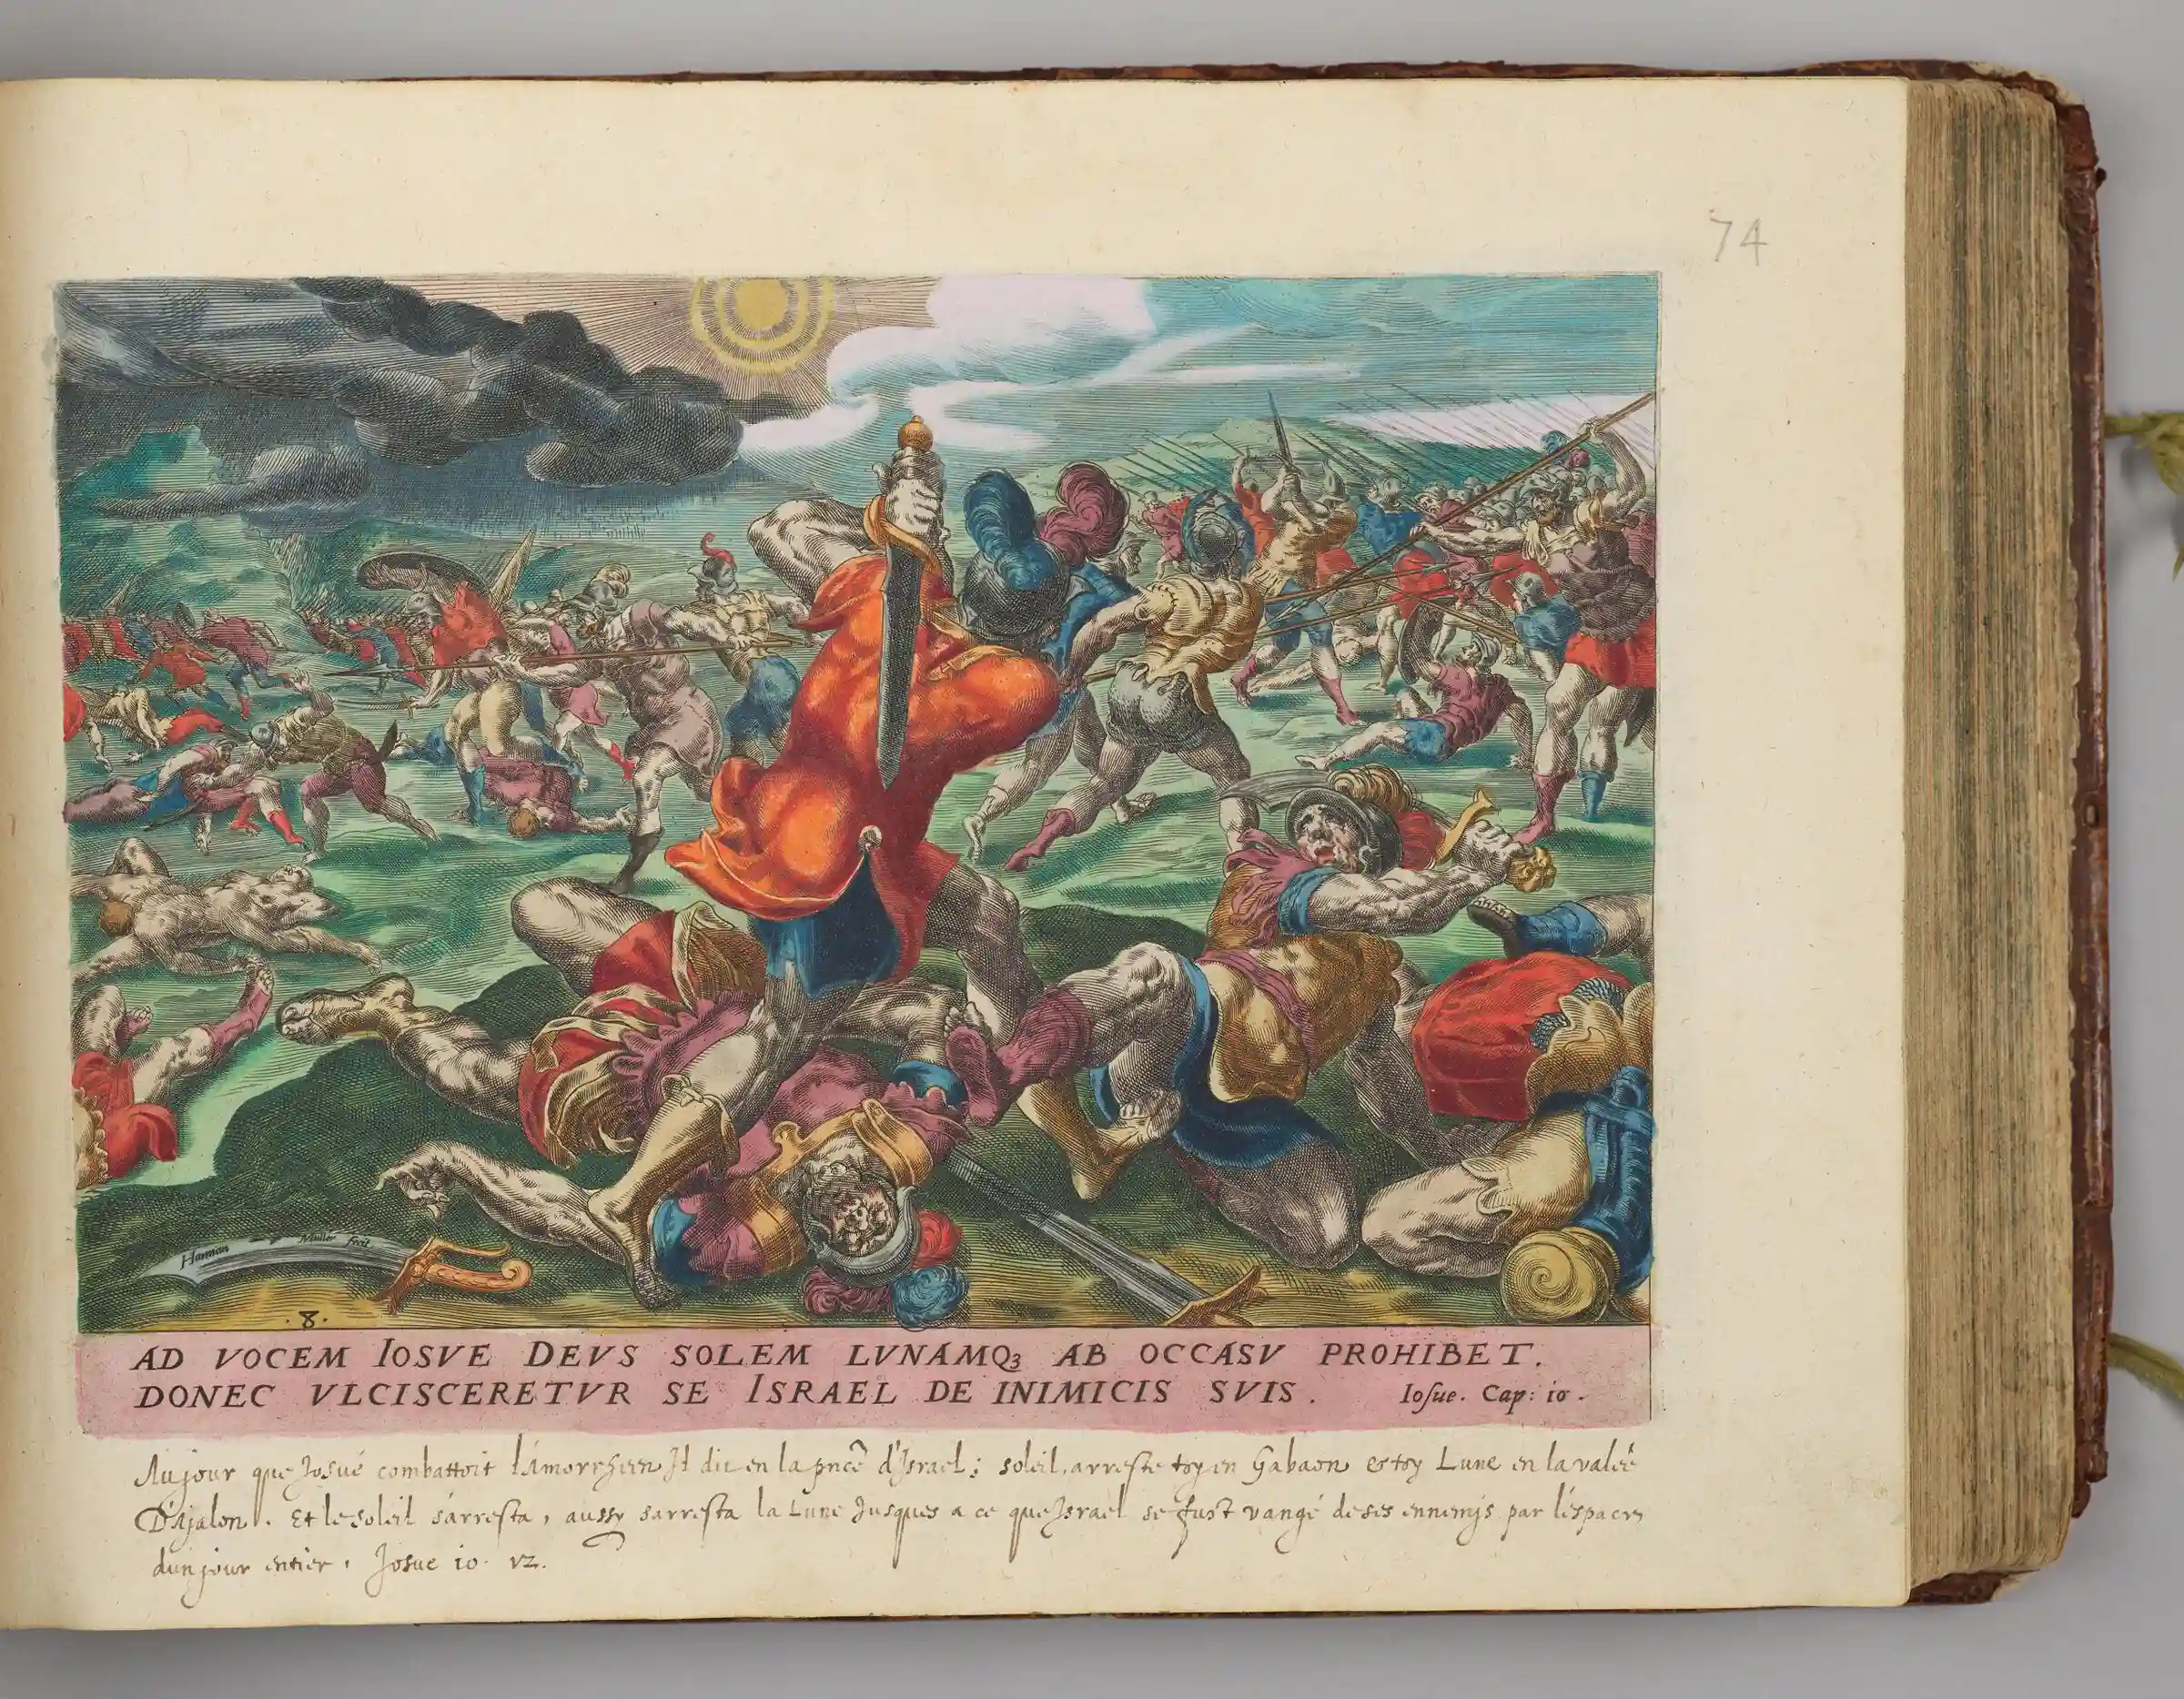 74
Harman Muller fecit.
.8.
AD VOCEM IOSVE DEVS SOLEM LVNAMQʒ AB OCCASV PROHIBET.
DONEC VLCISCERETVR SE ISRAEL DE INIMICIS SVIS. Iosue. Cap: 10.
Au jour que Josué combattoit l'Amorrheen Il dit en la pnce d'Israel; soleil, arreste toy en Gabaon & toy Lune en la valée
D'Ajalon. Et le soleil s'arresta, aussy sarresta la Lune Jusques a ce que Israel se fust vangé de ses ennemys par l'espace
dun jour entier. Josue 10. 12.